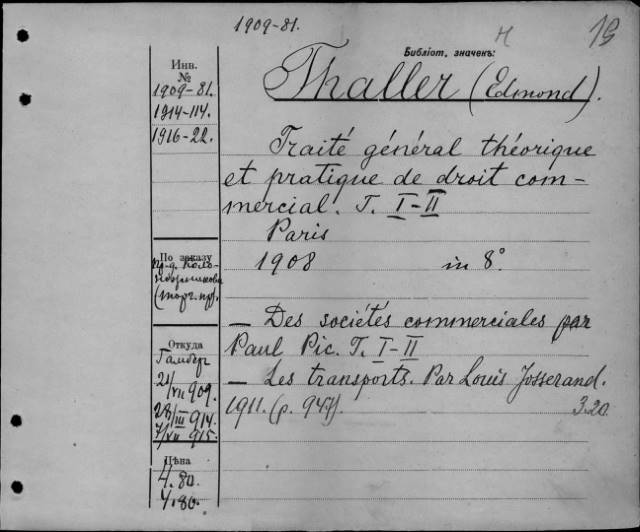 1909-81.
19
Библіот. значекъ:
Инв.
№
1909-81.
1914-114.
1916-22.
Thaller (Edmond).
Traité général théorique
et pratique de droit com-
mercial. T. I-II
Paris
1908 in 8°
По заказу
(торг. пр).
— Des sociétés commerciales par
Paul Pic. T. I-II
— Les transports. Par Louis Josserand.
1911. (p. 947). 3.20
Откуда
21/XII 909.
28/III 914.
7/XII 915.
Цѣна
4.80.
4.80.